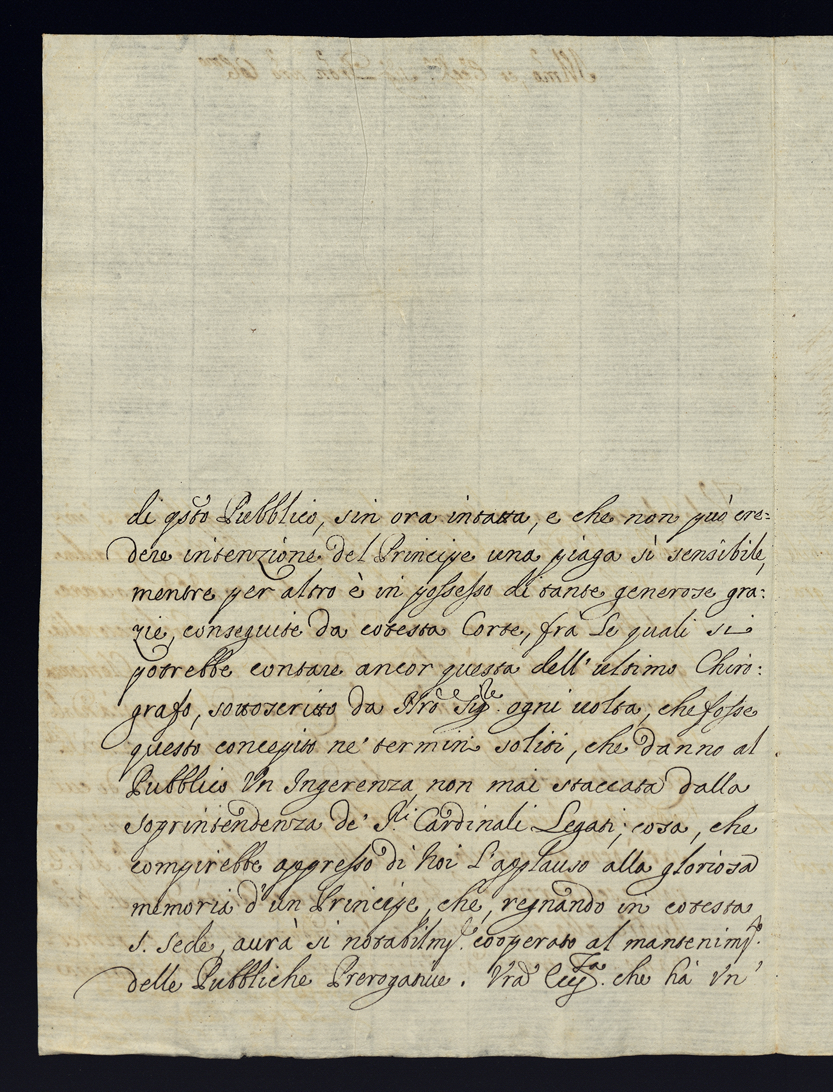 di qsto Pubblico, sin ora intatta, e che non può cre=
dere intenzione del Principe una piaga sì sensibile,
mentre per altro è in possesso di tante generose gra:
zie, conseguite da cotesta Corte, fra Le quali si
potrebbe contare ancor questa dell' ultimo Chiro:
grafo, sottoscritto da Nro Sigre. ogni volta, che fosse
questo concepito ne' termini soliti, che danno al
Pubblico Un Ingerenza, non mai staccata dalla
soprintendenza de' Sri. Cardinali Legati; cosa, che
compirebbe appresso di Noi L'applauso alla gloriosa
memoria d'un Principe, che, regnando in cotesta
S. Sede, aurà si notabilmte. cooperato al mantenimto.
delle Pubbliche Prerogatiue. Vra Ecca. che hà Un'